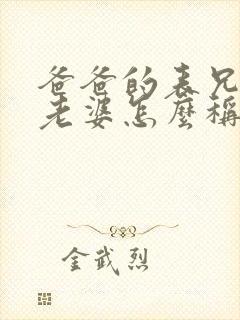 爸爸的表兄
老婆怎麼稱
金武烈